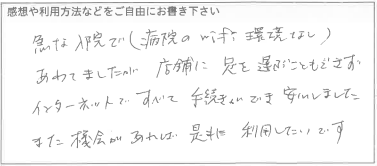 感想や利用方法などをご自由にお書き下さい
急な入院で(病院のwifi環境なし)
あわてましたが 店舗に 足を運ぶこともできず
インターネットですべて手続きができ 安心しました
また機会があれば 是非に 利用したいです